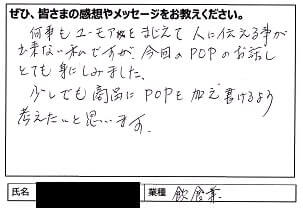 ぜひ、皆さまの感想やメッセージをお教えください。
何事もユーモア的をまじえて人に伝える事が
出来ない私ですが、今回のPOPのお話し
とても身にしみました。
少しでも商品にPOPを加え書けるよう
考えたいと思います。
氏名
業種 飲食業